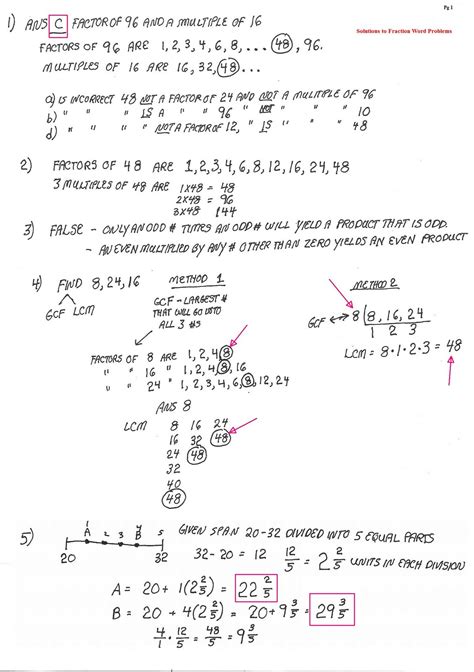 Pg 1
Solutions to Fraction Word Problems
1) ANS C FACTOR OF 96 AND A MULTIPLE OF 16
FACTORS OF 96 ARE 1, 2, 3, 4, 6, 8, ... 48, 96.
MULTIPLES OF 16 ARE 16, 32, 48 ...
a) IS INCORRECT 48 NOT A FACTOR OF 24 AND NOT A MULTIPLE OF 96
b) " " " IS A " " 96 " NOT " " " 10
d) " " " NOT A FACTOR OF 12, " IS " " " 48
2) FACTORS OF 48 ARE 1, 2, 3, 4, 6, 8, 12, 16, 24, 48
3 MULTIPLES OF 48 ARE 1x48 = 48
2x48 = 96
3x48 144
3) FALSE - ONLY AN ODD # TIMES AN ODD # WILL YIELD A PRODUCT THAT IS ODD.
- AN EVEN MULTIPLIED BY ANY # OTHER THAN ZERO YIELDS AN EVEN PRODUCT
4) FIND 8, 24, 16 METHOD 1 METHOD 2
GCF LCM
GCF - LARGEST #
THAT WILL GO INTO
ALL 3 #S
GCF ↔ 8 8, 16, 24
1 2 3
LCM = 8·1·2·3 = 48
FACTORS OF 8 ARE 1, 2, 4, 8
" " 16 " 1, 2, 4, 8, 16
" " 24 " 1, 2, 3, 4, 6, 8, 12, 24
ANS 8
LCM 8 16 24
16 32 48
24 48
32
40
48
5) 1 A 2 3 4 B 5 GIVEN SPAN 20-32 DIVIDED INTO 5 EQUAL PARTS
20 32 32 - 20 = 12 12/5 = 2 2/5 UNITS IN EACH DIVISION
A = 20 + 1(2 2/5) = 22 2/5
B = 20 + 4(2 2/5) = 20 + 9 3/5 = 29 3/5
4/1 · 12/5 = 48/5 = 9 3/5